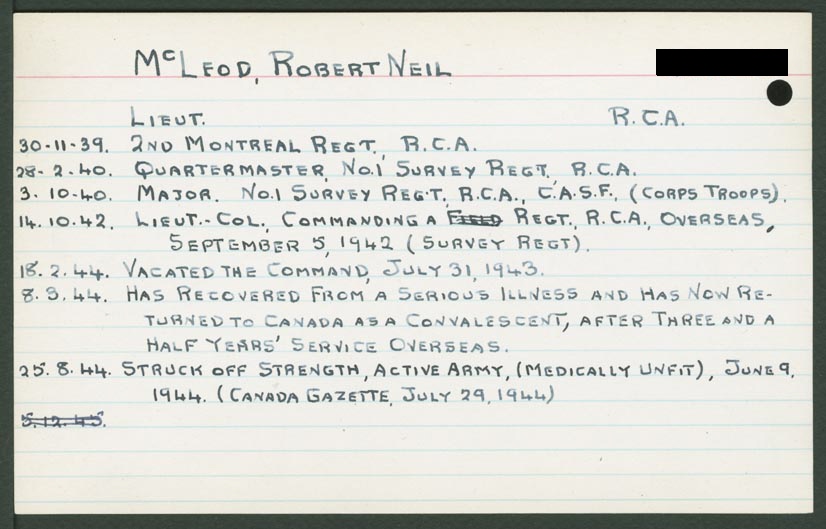 McLEOD, ROBERT NEIL
LIEUT. R.C.A.
30-11-39. 2ND MONTREAL REGT., R.C.A.
28-2-40. QUARTERMASTER, No.1 SURVEY REGT, R.C.A.
3-10-40. MAJOR. No.1 SURVEY REG'T, R.C.A., C.A.S.F., (CORPS TROOPS).
14.10.42. LIEUT.-COL., COMMANDING A FIELD REGT., R.C.A., OVERSEAS,
SEPTEMBER 5, 1942 (SURVEY REGT).
18.2.44. VACATED THE COMMAND, JULY 31, 1943.
8.3.44. HAS RECOVERED FROM A SERIOUS ILLNESS AND HAS NOW RE-
TURNED TO CANADA AS A CONVALESCENT, AFTER THREE AND A
HALF YEARS' SERVICE OVERSEAS.
25.8.44. STRUCK OFF STRENGTH, ACTIVE ARMY, (MEDICALLY UNFIT), JUNE 9,
1944. (CANADA GAZETTE, JULY 29, 1944)
5.12.45.